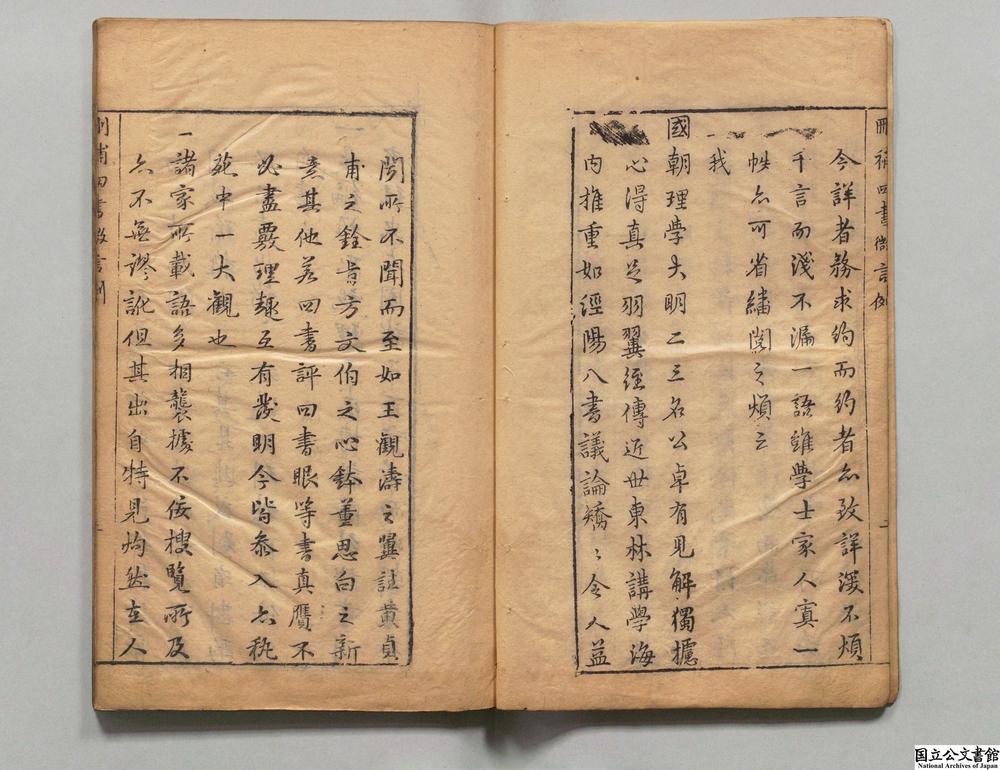 刪補四書微言例
今詳者務求約而約者亦致詳湲不煩
千言而淺不漏一語雖學士家人寘一
帙亦可省繙閱之煩云
一我
國朝理學大明二三名公卓有見解獨攄
心得真足羽翼經傳近世東林講學海
內推重如涇陽八書議論矯〻令人益
聞所不聞而至如王觀濤之翼註黃貞
甫之銓旨方文伯之心鉢董思白之新
意其他若四書評四書眼等書真贗不
必盡覈理趣互有發明今皆叅入亦秇
苑中一大觀也
一諸家所載語多相襲據不佞搜覽所及
亦不無謬訛但其出自特見灼然在人
刪補四書微言例
国立公文書館
National Archives of Japan